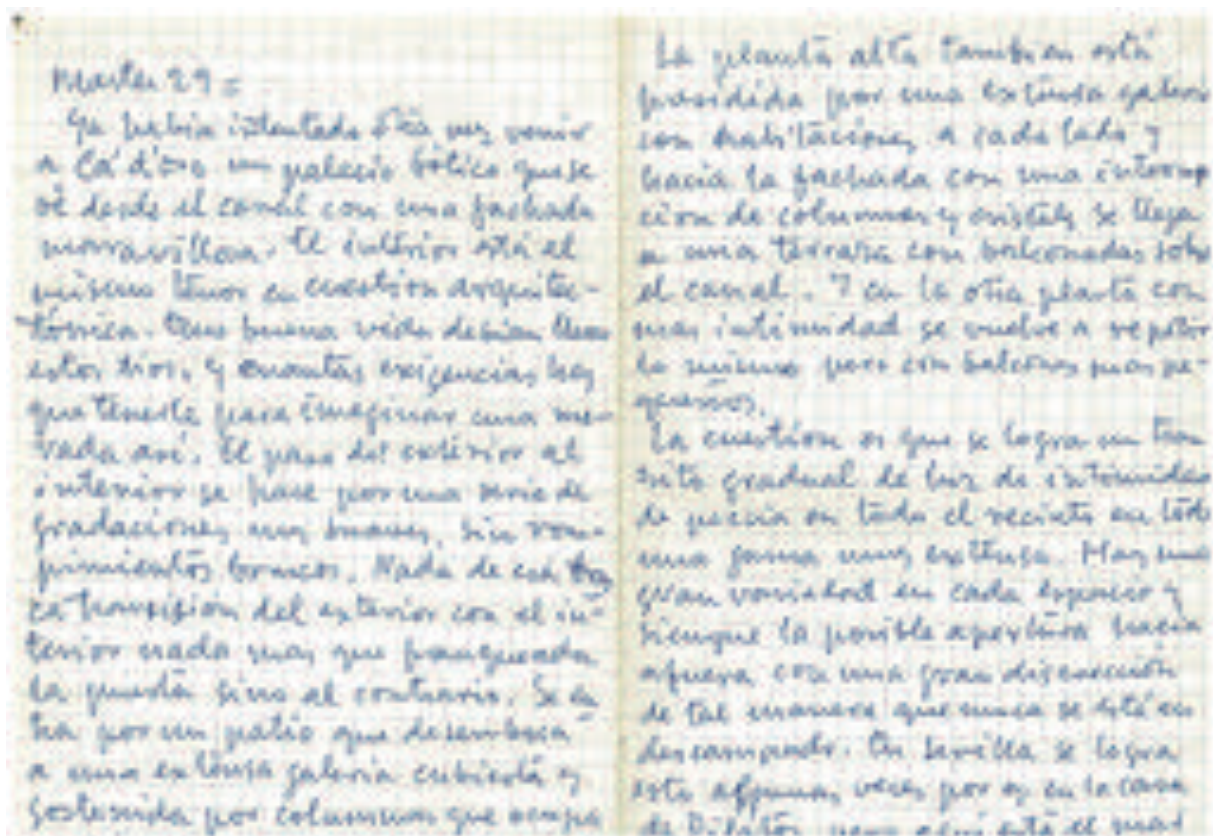 Martes 29 =
Ya habia intentado otra vez venir
a Ca d'Oro un palacio Gotico que se
vé desde el canal con una fachada
maravillosa. El interior está el
mismo tenor en cuestion arquitec-
tónica. Que buena vida debian llevar
estos tios, y cuantas exigencias hay
que tenerle para imaginar una mo-
rada asi. El paso del exterior al
interior se hace por una serie de
gradaciones muy suaves, sin rom-
pimientos broncos. Nada de esa
transision del exterior con el in-
terior nada mas que franqueada
la puerta sino al contrario. Se en
tra por un patio que desemboca
a una extensa galeria cubierta y
sostenida por columnas que ocupa
La planta alta tambien está
presidida por una extensa galeria
con habitaciones a cada lado y
hacia la fachada con una interrup
cion de columnas y cristales se llega
a una terraza con balconadas sobre
el canal. Y en la otra planta con
mas intimidad se vuelve a repetir
lo mismo pero con balcones mas pe-
queños.
La cuestion es que se logra un tran
sito gradual de luz de intimidad
de poesia en todo el recinto en todo
una gama muy extensa. Hay una
gran variedad en cada espacio y
siempre la posible apertura hacia
afuera con una gran discrección
de tal manera que nunca se está en
descampado. En Sevilla se logra
esto algunas veces por ej en la casa
de Pilatos pero aqui está el mar